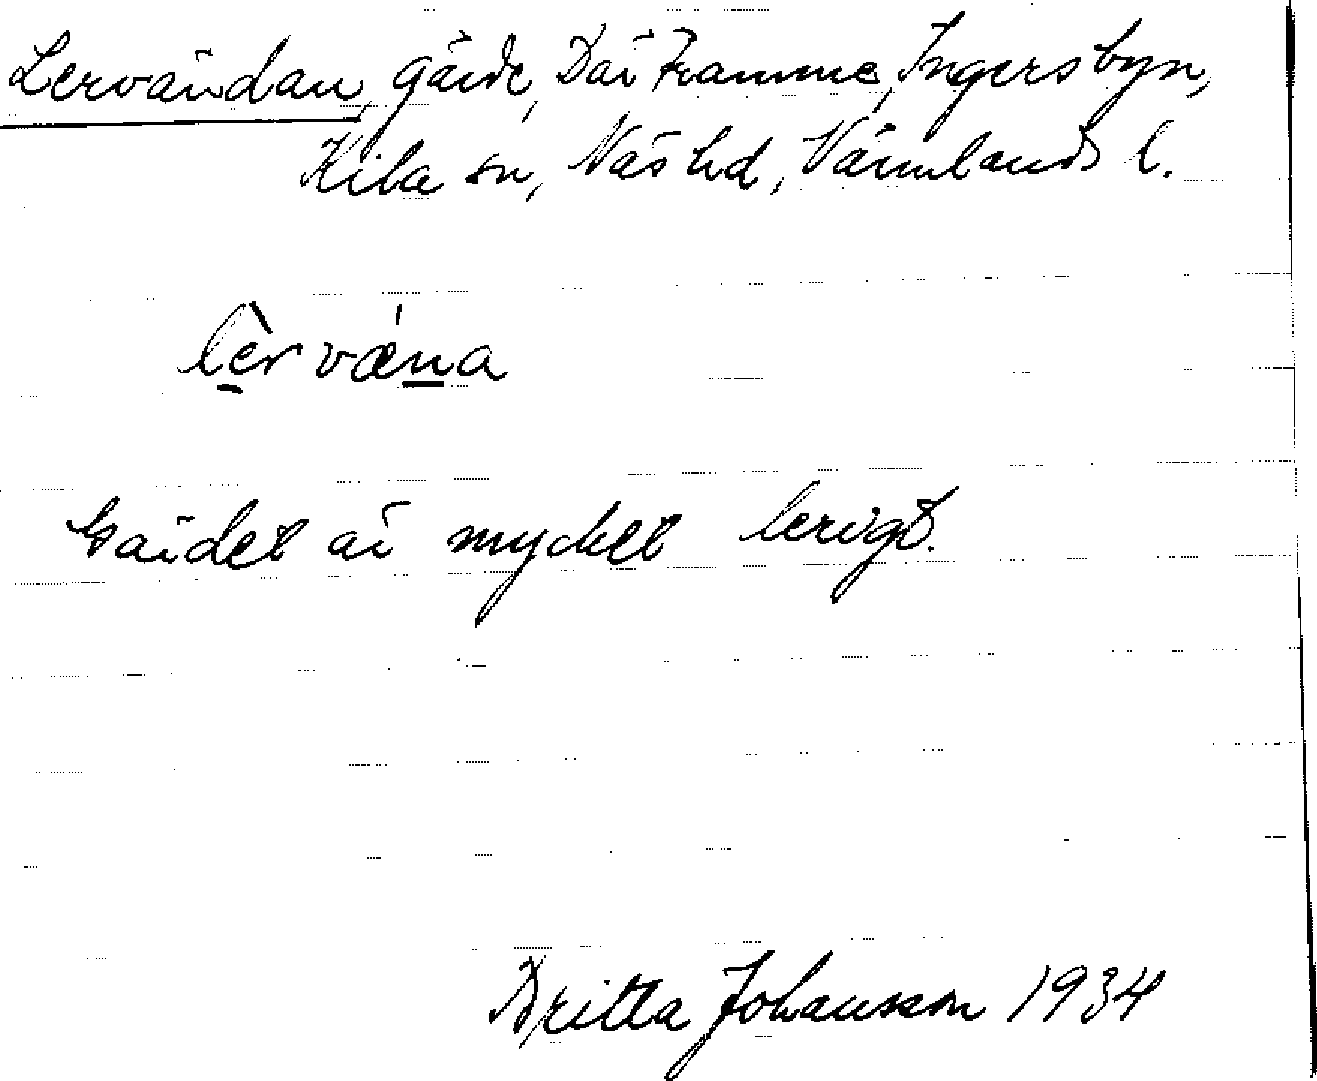 Lervändan, gärde, Där Framme, Ingersbyn,
Kila sn, Näs hd, Värmlands l.
lèrvǽna
Gärdet är mycket lerigt.
Britta Johansson 1934